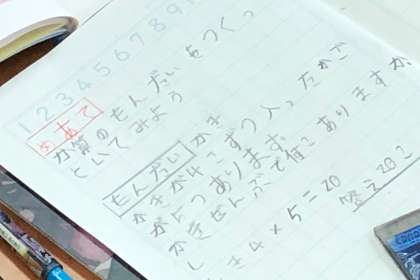 1 2 3 4 5 6 7 8 9
め あて
算のもんだいをつくっ
といてみよう
もんだい かき
かきが4こずつ入ったかご
が5つあります
かきぜんぶで何こありますか
しき 4×5=20
答え 20こ